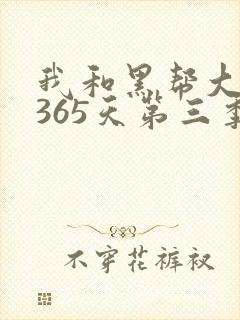 我和黑帮大
365天第三季
不穿花裤衩